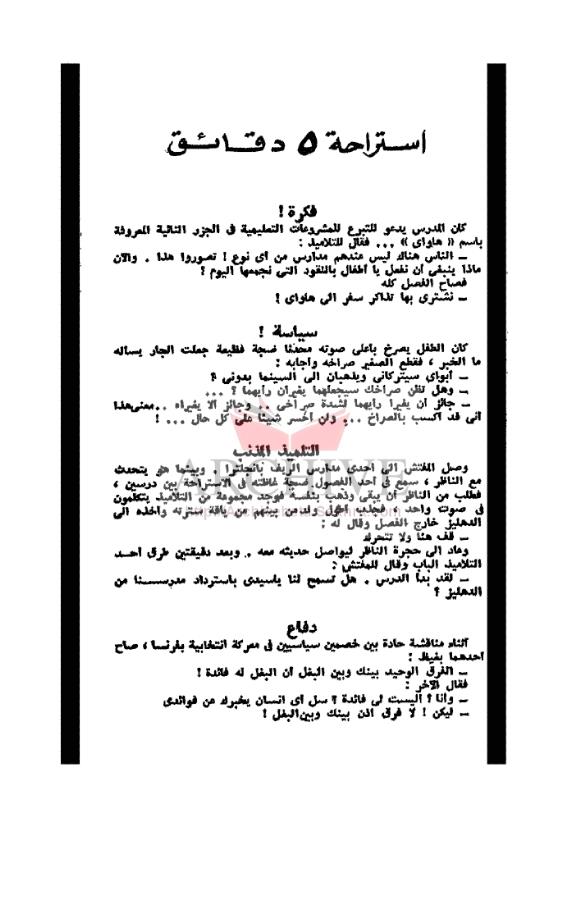 استراحة ٥ دقائق
فكرة !
كان المدرس يدعو للتبرع للمشروعات التعليمية فى الجزر النائية المعروفة
باسم « هاواى » ... فقال للتلاميذ :
ـ الناس هناك ليس عندهم مدارس من أى نوع ! تصوروا هذا . والآن
ماذا ينبغى أن نفعل يا أطفال بالنقود التى نجمعها اليوم ؟
فصاح الفصل كله
ـ نشترى بها تذاكر سفر الى هاواى !
سياسة !
كان الطفل يصرخ بأعلى صوته محدثا ضجة فظيعة جعلت الجار يسأله
ما الخبر ، فقطع الصغير صراخه وأجابه :
ـ أبواى سيتركانى ويذهبان الى السينما بدونى ؟
ـ وهل تظن صراخك سيجعلهما يغيران رأيهما ؟ ...
ـ جائز أن يغيرا رأيهما لشدة صراخى .. وجائز ألا يغيراه .. معنى هذا
أنى قد أكسب بالصراخ ... ولن أخسر شيئا على كل حال ... !
التلميذ المذنب
وصل المفتش الى احدى مدارس الريف بانجلترا . وبينما هو يتحدث
مع الناظر ، سمع فى أحد الفصول ضجة غاظته فى الاستراحة بين درسين ،
فطلب من الناظر أن يبقى وذهب بنفسه فوجد مجموعة من التلاميذ يتكلمون
فى صوت واحد ، فجذب أطول ولد من بينهم من ياقة سترته وأخذه الى
الدهليز خارج الفصل وقال له :
ـ قف هنا ولا تتحرك
وعاد الى حجرة الناظر ليواصل حديثه معه . وبعد دقيقتين طرق أحد
التلاميذ الباب وقال للمفتش :
ـ لقد بدأ الدرس . هل تسمح لنا ياسيدى باسترداد مدرسنا من
الدهليز ؟
دفاع
أثناء مناقشة حادة بين خصمين سياسيين فى معركة انتخابية بفرنسا ، صاح
أحدهما بغيظ :
ـ الفرق الوحيد بينك وبين البغل أن البغل له فائدة !
فقال الآخر :
ـ وأنا ؟ أليست لى فائدة ؟ سل أى انسان يخبرك عن فوائدى
ـ ليكن ! لا فرق اذن بينك وبين البغل !
ARCHIVE